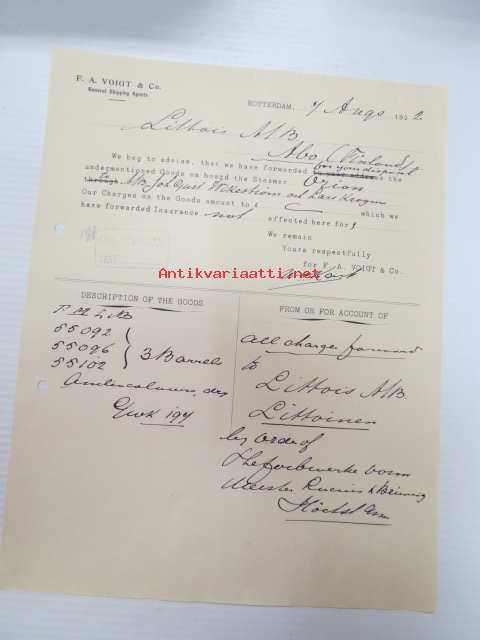 F. A. VOIGT & Co.
General Shipping Agents.
ROTTERDAM, 7 Augs 1922
Littois A/B
Abo (Finland)
We beg to advise, that we have forwarded for your disposal to your orders the
undermentioned Goods on board the Steamer Orion
through to A/B John
Our Charges on the Goods amount to £ which we
have forwarded Insurance not effected here for
We remain
Yours respectfully
for F. A. VOIGT & Co.
Antikvariaatti.net
DESCRIPTION OF THE GOODS
FROM OR FOR ACCOUNT OF
55092
55096
55102
3 Barrels
Anilincolours, dry
197
All charges forward
to
Littois A/B.
Littoinen
by order of
Farbwerke vorm
Meister Lucius & Brüning
Höchst a/m